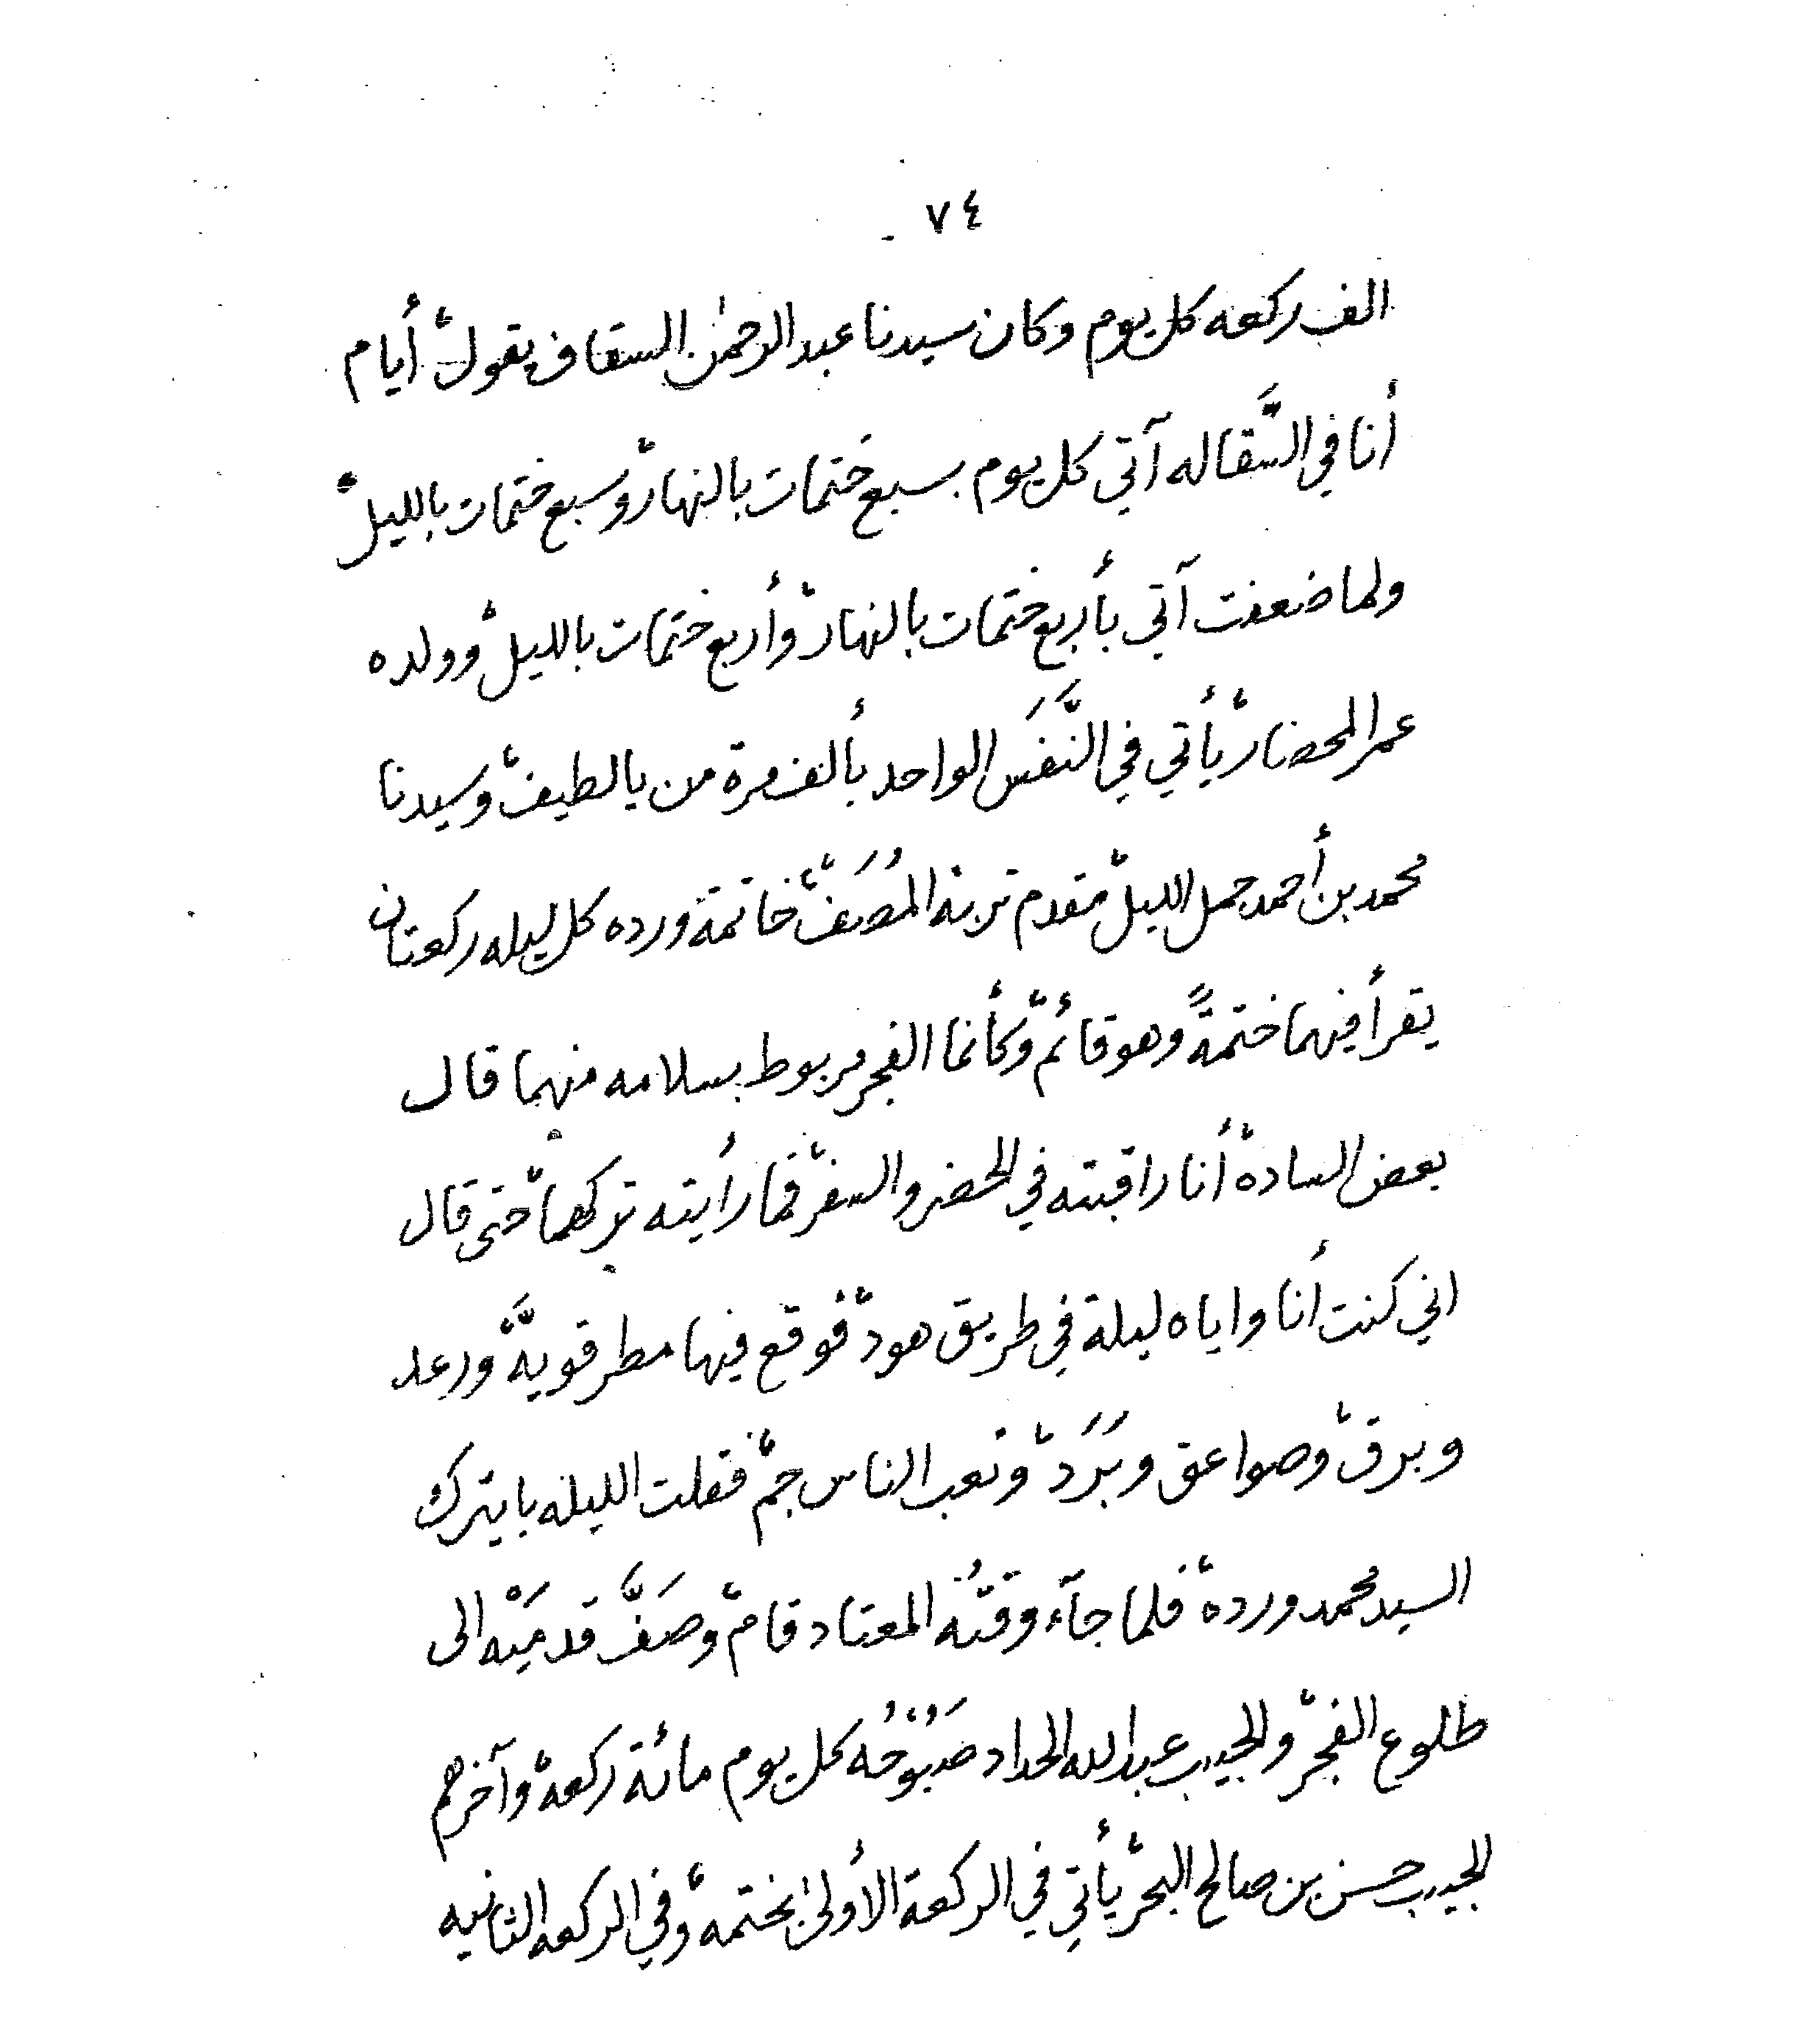 ٧٤
الف ركعه كل يوم وكان سيدنا عبد الرحمٰن السقاف يقول، أيام
أنا في السَّقاله آتي كل يوم بسبع ختمات بالنهار، وسبع ختمات بالليل،
ولما ضعفت آتي بأربع ختمات بالنهار، وأربع ختمات بالليل، وولده
عمر المحضار، يأتي في النَّفَس الواحد بألف مرة من يا لطيف، وسيدنا
محمد بن أحمد جمل الليل، مقدم تربة المُصَف، خاتمة ورده كل ليله ركعتان
يقرأ فيهما ختمةً وهو قائم، وكأنما الفجر مربوط بسلامه منهما قال
بعض الساده، أنا راقبته في الحضر والسفر، فما رأيته تركهما، حتى قال
اني كنت أنا واياه ليلة في طريق هود، فوقع فيها مطر قويَّه، ورعد
وبرق، وصواعق وبَرَد، وتعب الناس جم، فقلت الليله با يترك
السيد محمد ورده، فلما جآء وقتُه المعتاد قام، وصَفَّ قدمَيْه الى
طلوع الفجر، والحبيب عبد الله الحداد صَبُوْحُه كل يوم مائة ركعة، وآخرهم
الحبيب حسن بن صالح البحر، يأتي في الركعة الأولىٰ بختمه، وفي الركعه الثانيه